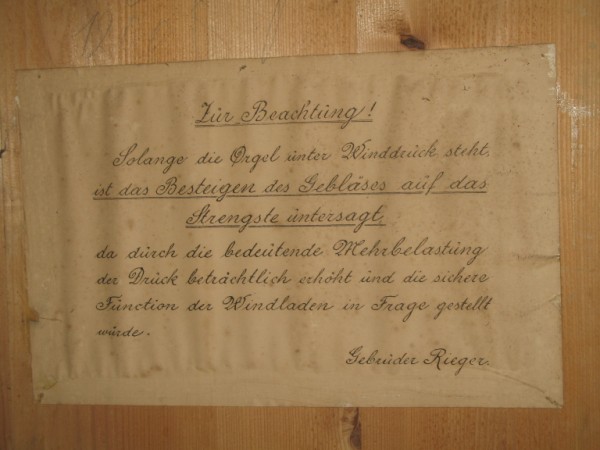 Zur Beachtung!
Solange die Orgel unter Winddruck steht,
ist das Besteigen des Gebläses auf das
Strengste untersagt,
da durch die bedeutende Mehrbelastung
der Druck beträchtlich erhöht und die sichere
Function der Windladen in Frage gestellt
würde.
Gebrüder Rieger.